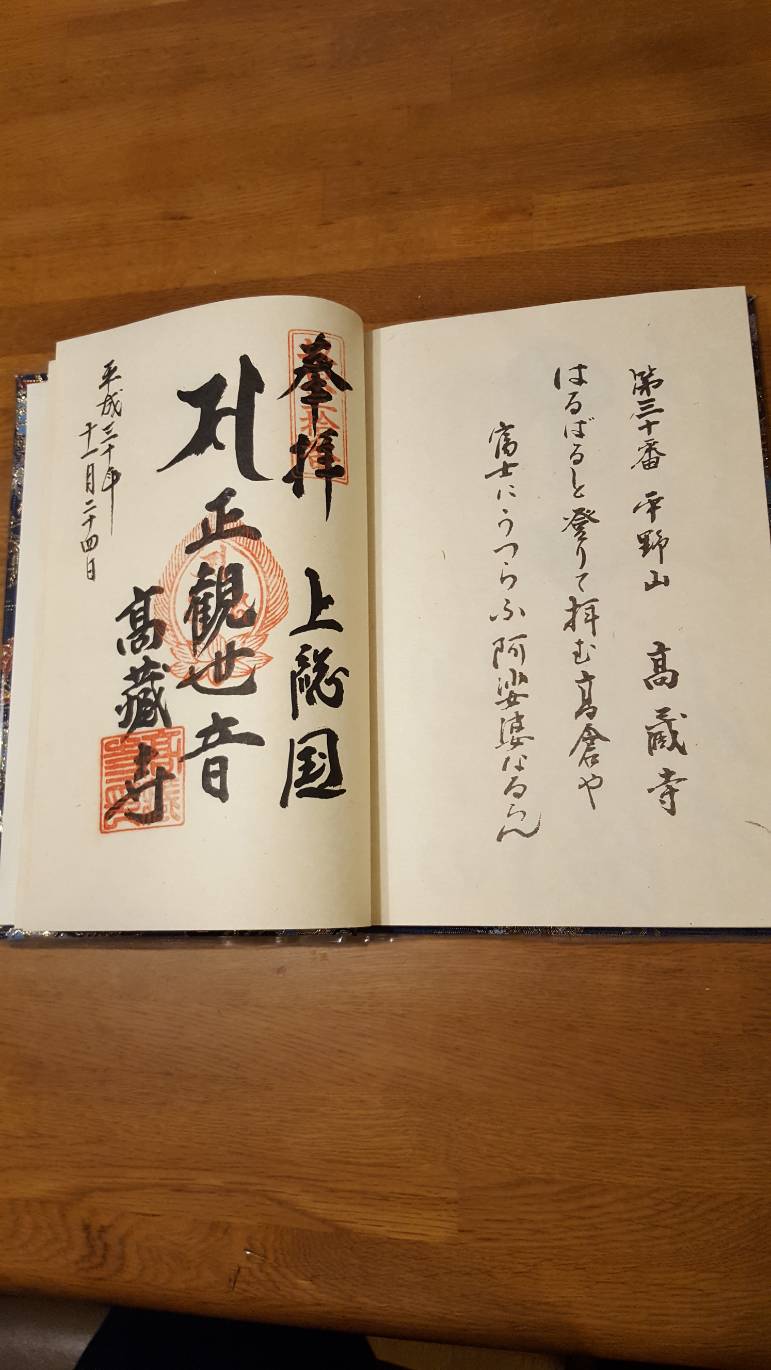 第三十番 平野山 高蔵寺
はるばると登りて拝む高倉や
富士にうつらふ阿娑婆なるらん
奉拝 上総国
正観世音
高蔵寺
平成三十年
十一月二十四日